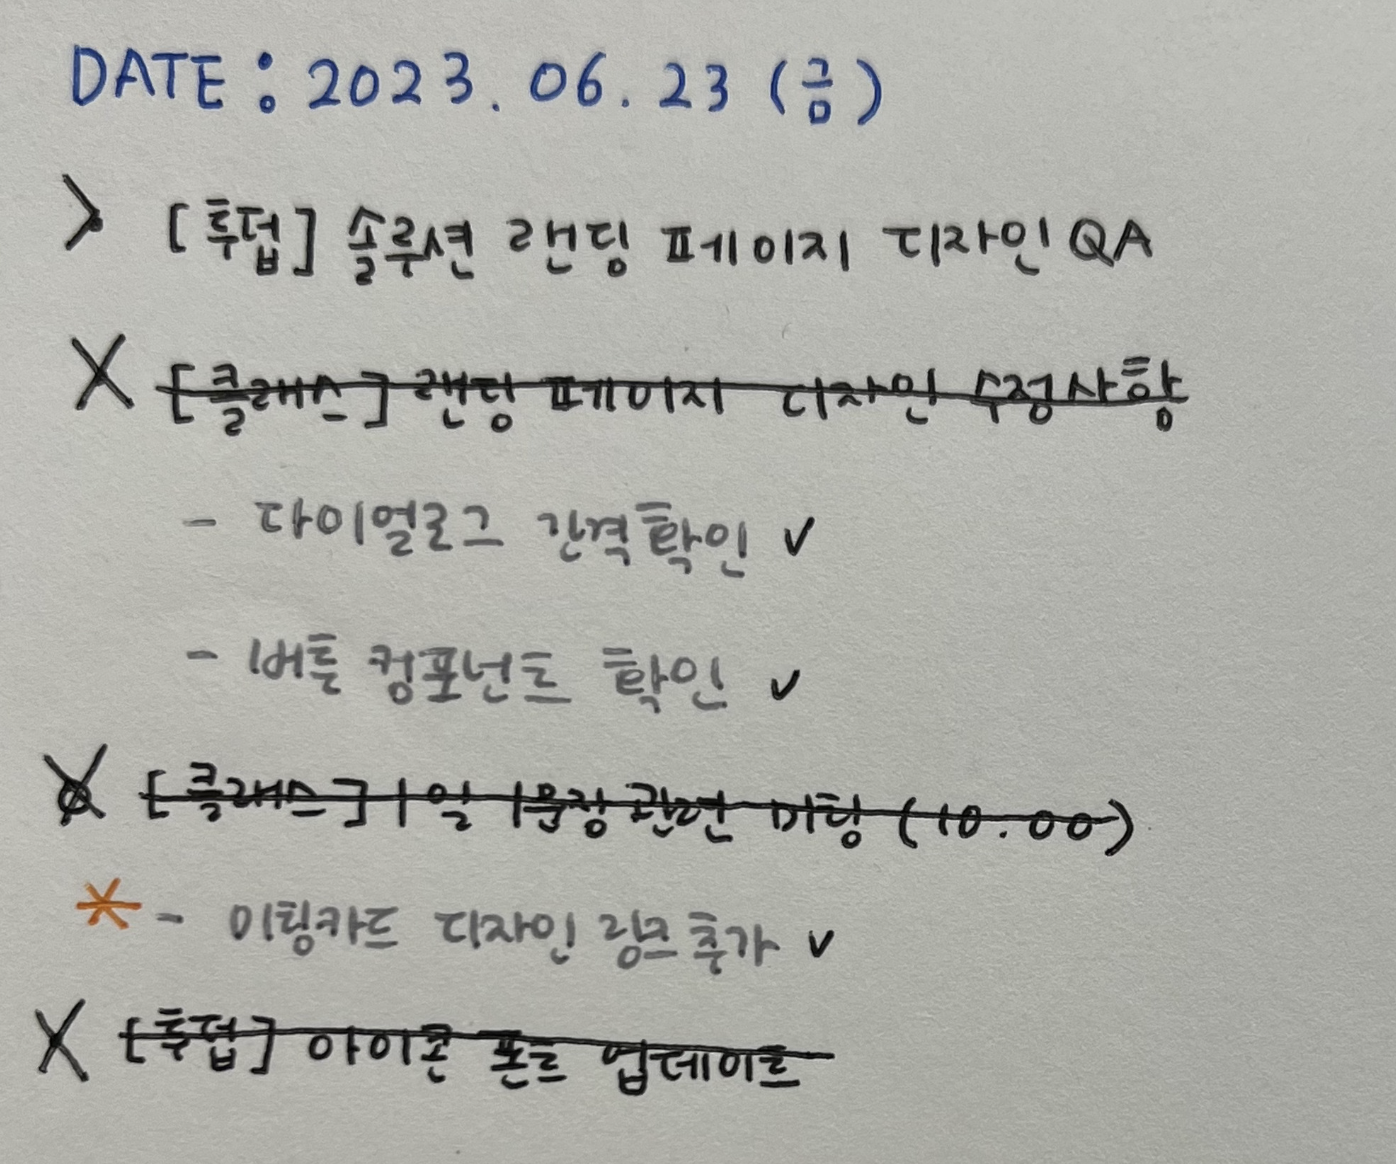 DATE : 2023. 06. 23 (금)
> [투덥] 솔루션 랜딩 페이지 디자인 QA
X [클래스] 랜딩 페이지 디자인 수정사항
- 다이얼로그 간격 확인 ✓
- 버튼 컴포넌트 확인 ✓
X [클래스] 1일 1문장 관련 미팅 (10.00)
* - 미팅카드 디자인 링크 추가 ✓
X [투덥] 아이콘 폰트 업데이트